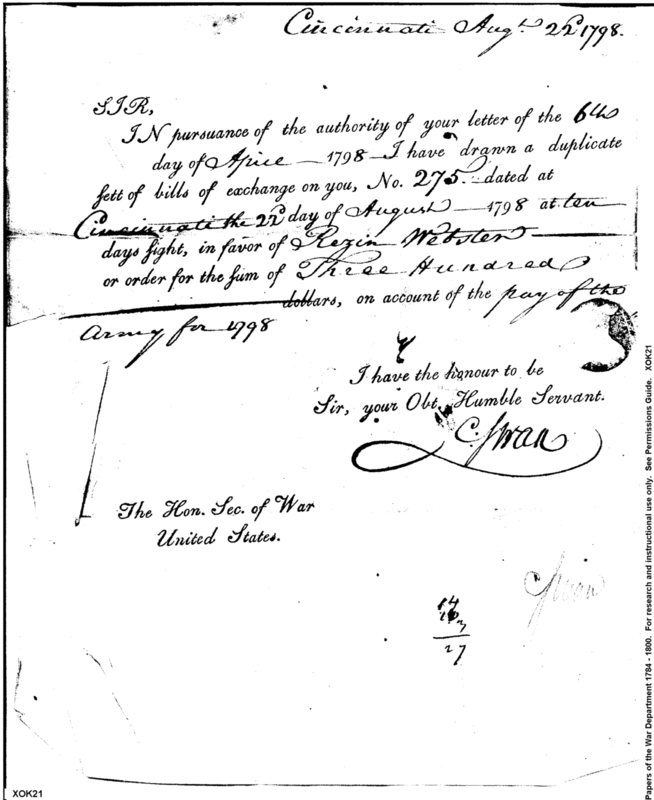 Cincinnati Augt. 22d 1798.
SIR,
IN pursuance of the authority of your letter of the 6th
day of April — 1798 — I have drawn a duplicate
sett of bills of exchange on you, No. 275. dated at
Cincinnati the 22d day of August — 1798 at ten
days sight, in favor of Rezin Webster
or order for the sum of Three Hundred
dollars, on account of the pay of the
Army for 1798
I have the honour to be
Sir, your Obt. Humble Servant.
C. Swan
The Hon. Sec. of War
United States.
Swan
14
27
XOK21
Papers of the War Department 1784 - 1800. For research and instructional use only. See Permissions Guide. XOK21